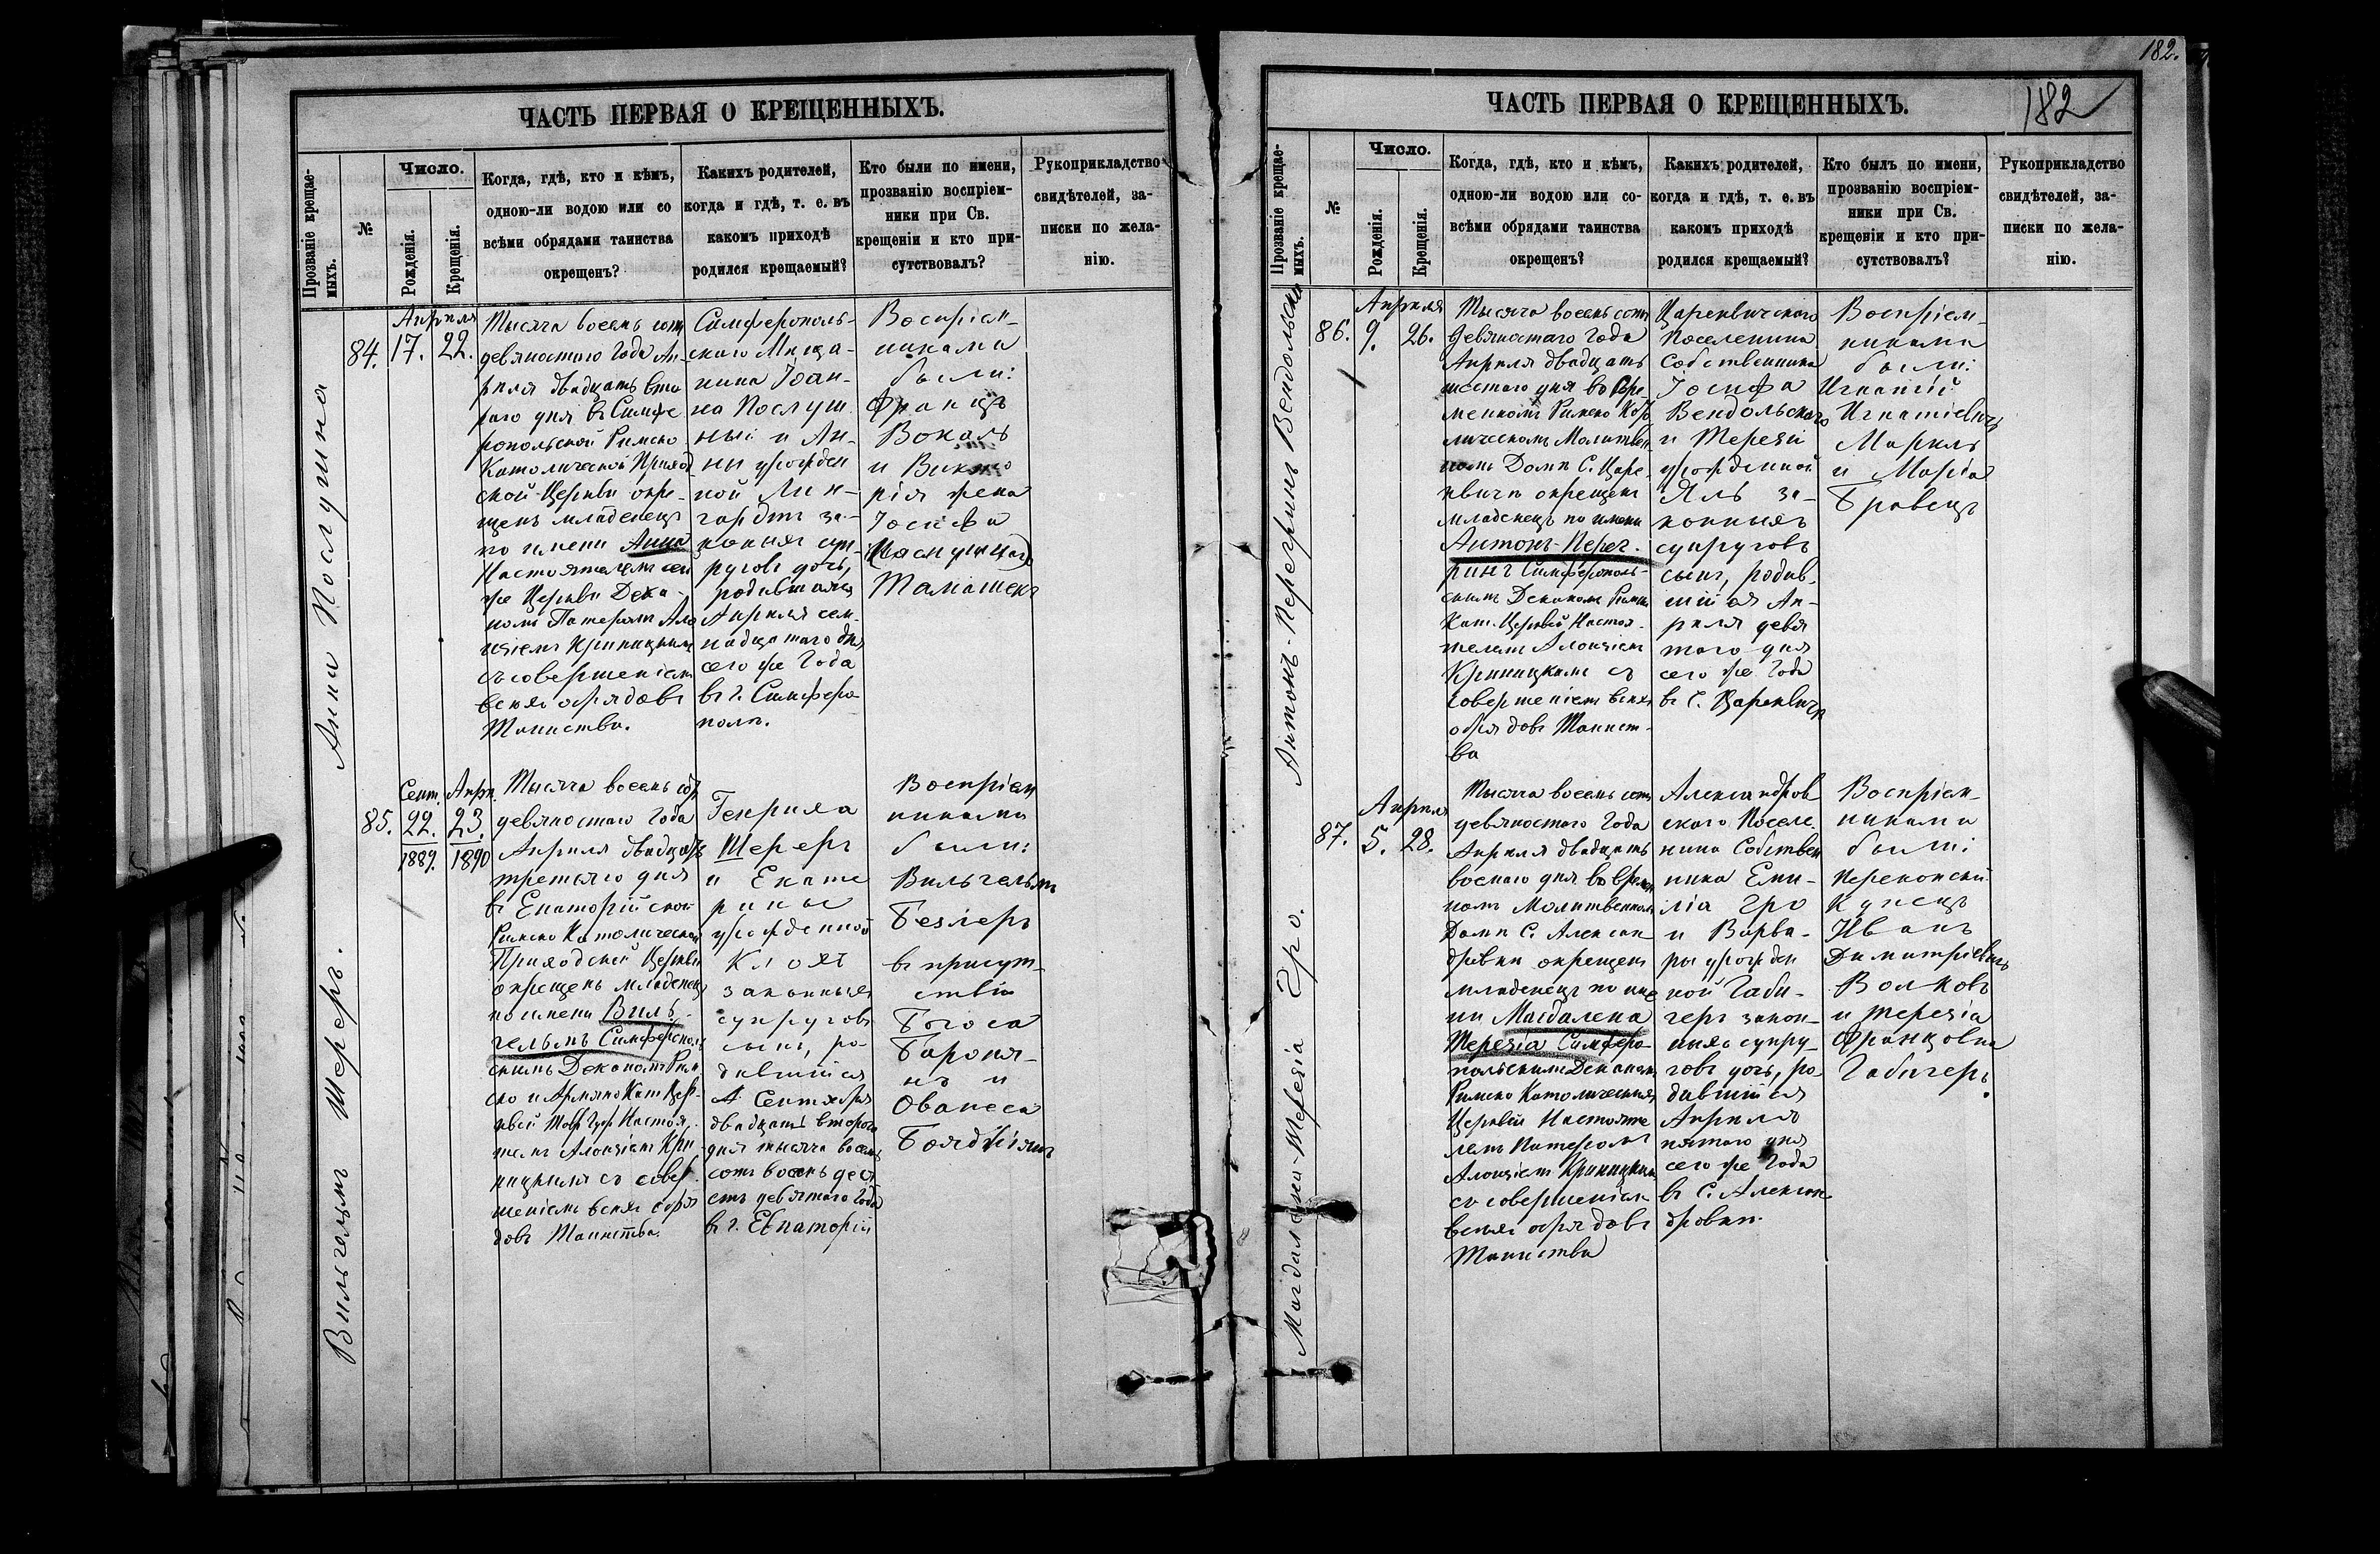 ЧАСТЬ ПЕРВАЯ О КРЕЩЕННЫХЪ.
Прозваніе крещае-
мыхъ.
№
Число.
Рожденія.
Крещенія.
Когда, гдѣ, кто и кѣмъ,
одною-ли водою или со
всѣми обрядами таинства
окрещенъ?
Какихъ родителей,
когда и гдѣ, т. е. въ
какомъ приходѣ
родился крещаемый?
Кто были по имени,
прозванію воспріем-
ники при Св.
крещеніи и кто при-
сутствовалъ?
Рукоприкладство
свидѣтелей, за-
писки по жела-
нію.
Анна Послушна
84.
Апрѣля
17. 22.
Тысяча восемь сотъ
девяностого Года Ап-
рѣля двадцать вто
рого дня въ Симфе
ропольской Римско
Католической Приход
ской Церкви окре-
щенъ младенецъ
по имени Анна
Настоятелемъ сей
же Церкви Дека-
номъ Патеромъ Ало
изіемъ Криницкимъ
съ совершеніемъ
всѣхъ обрядовъ
Таинства.
Симферополь-
ского Мѣща-
нина Іоан-
на Послуш
ный и Ан-
ны урожден
ной Лин-
гардтъ за-
конныхъ суп-
руговъ дочь,
родившаяся
Апрѣля сем-
надцатого дня
сего же Года
въ г. Симферо
полѣ.
Воспріем-
никами
были:
Францъ
Вокаль
и Викто
рія жена
Іосифа
(Послушного)
Тамашекъ
Вильгельмъ Шереръ.
85.
Сент. Апрѣ.
22. 23.
1889. 1890
Тысяча восемь сотъ
девяностого Года
Апрѣля двадцать
третьяго дня
въ Евпаторійской
Римско Католической
Приходской Церкви
окрещенъ младенецъ
по имени Виль-
гельмъ Симферополь
скимъ Деканомъ Рим
ско и Армяно Кат. Цер-
квей Тавр. Губ. Настоя
телемъ Алоизіемъ Кри-
ницкимъ съ совер
шеніемъ всѣхъ обря
довъ Таинства.
Генриха
Шереръ
и Екате
рины
урожденной
Клохъ
законныхъ
супруговъ
сынъ, ро-
дившійся
Сентября
двадцать второго
дня тысяча восемь
сотъ восемь деся
етъ девятого Года
въ г. Евпаторіи
Воспріем
никами
были:
Вильгельмъ
Безлеръ
въ присут-
ствіи
Богоса
Бароня-
нъ и
Ованеса
Бояджіянъ
182.
182
ЧАСТЬ ПЕРВАЯ О КРЕЩЕННЫХЪ.
Прозваніе крещае-
мыхъ.
№
Число.
Рожденія.
Крещенія.
Когда, гдѣ, кто и кѣмъ,
одною-ли водою или со-
всѣми обрядами таинства
окрещенъ?
Какихъ родителей,
когда и гдѣ, т. е. въ
какомъ приходѣ
родился крещаемый?
Кто былъ по имени,
прозванію воспріем-
ники при Св.
крещеніи и кто при-
сутствовалъ?
Рукоприкладство
свидѣтелей, за-
писки по жела-
нію.
Антонъ-Перегринъ Вендольскій
86.
Апрѣля
9. 26.
Тысяча восемь сотъ
девяностого Года
Апрѣля двадцать
шестого дня во Вре-
менномъ Римско Като
лическомъ Молитвен
номъ Домѣ С. Царе
квичъ окрещенъ
младенецъ по имени
Антонъ-Перег-
ринъ Симферополь-
скимъ Деканомъ Римск
Кат. Церквей Настоя-
телемъ Алоизіемъ
Криницкимъ съ
совершеніемъ всѣхъ
обрядовъ Таинст-
ва
Цареквичского
Поселенина
Собственника
Іосифа
Вендольского
и Терезіи
урожденной
Яль за-
конныхъ
супруговъ
сынъ, родив-
шійся Ап-
рѣля девя
того дня
сего же Года
въ С. Цареквичъ
Воспріем-
никами
были:
Игнатій
Игнатіевичъ
Маркль
и Марія
Гравецъ
Магдалена-Терезія Гро.
87.
Апрѣля
5. 28.
Тысяча восемь сотъ
девяностого Года
Апрѣля двадцать
восмого дня во Времен
номъ Молитвенномъ
Домѣ С. Алексан
дровки окрещенъ
младенецъ по име
ни Магдалена
Терезія Симферо-
польскимъ Деканомъ
Римско Католическихъ
Церквей Настояте
лемъ Патеромъ
Алоизіемъ Криницкимъ
съ совершеніемъ
всѣхъ обрядовъ
Таинства
Александров
ского Поселе
нина Собствен
ника Еми-
лія Гро
и Варва-
ры урожден
ной Габи-
геръ закон-
ныхъ супру-
говъ дочь, ро-
дившійся
Апрѣля
пятого дня
сего же Года
въ С. Алексан
дровкѣ.
Воспріем-
никами
были:
Перекопскій
Купецъ
Иванъ
Димитріевичъ
Волковъ
и Терезія
Францовна
Габигеръ.